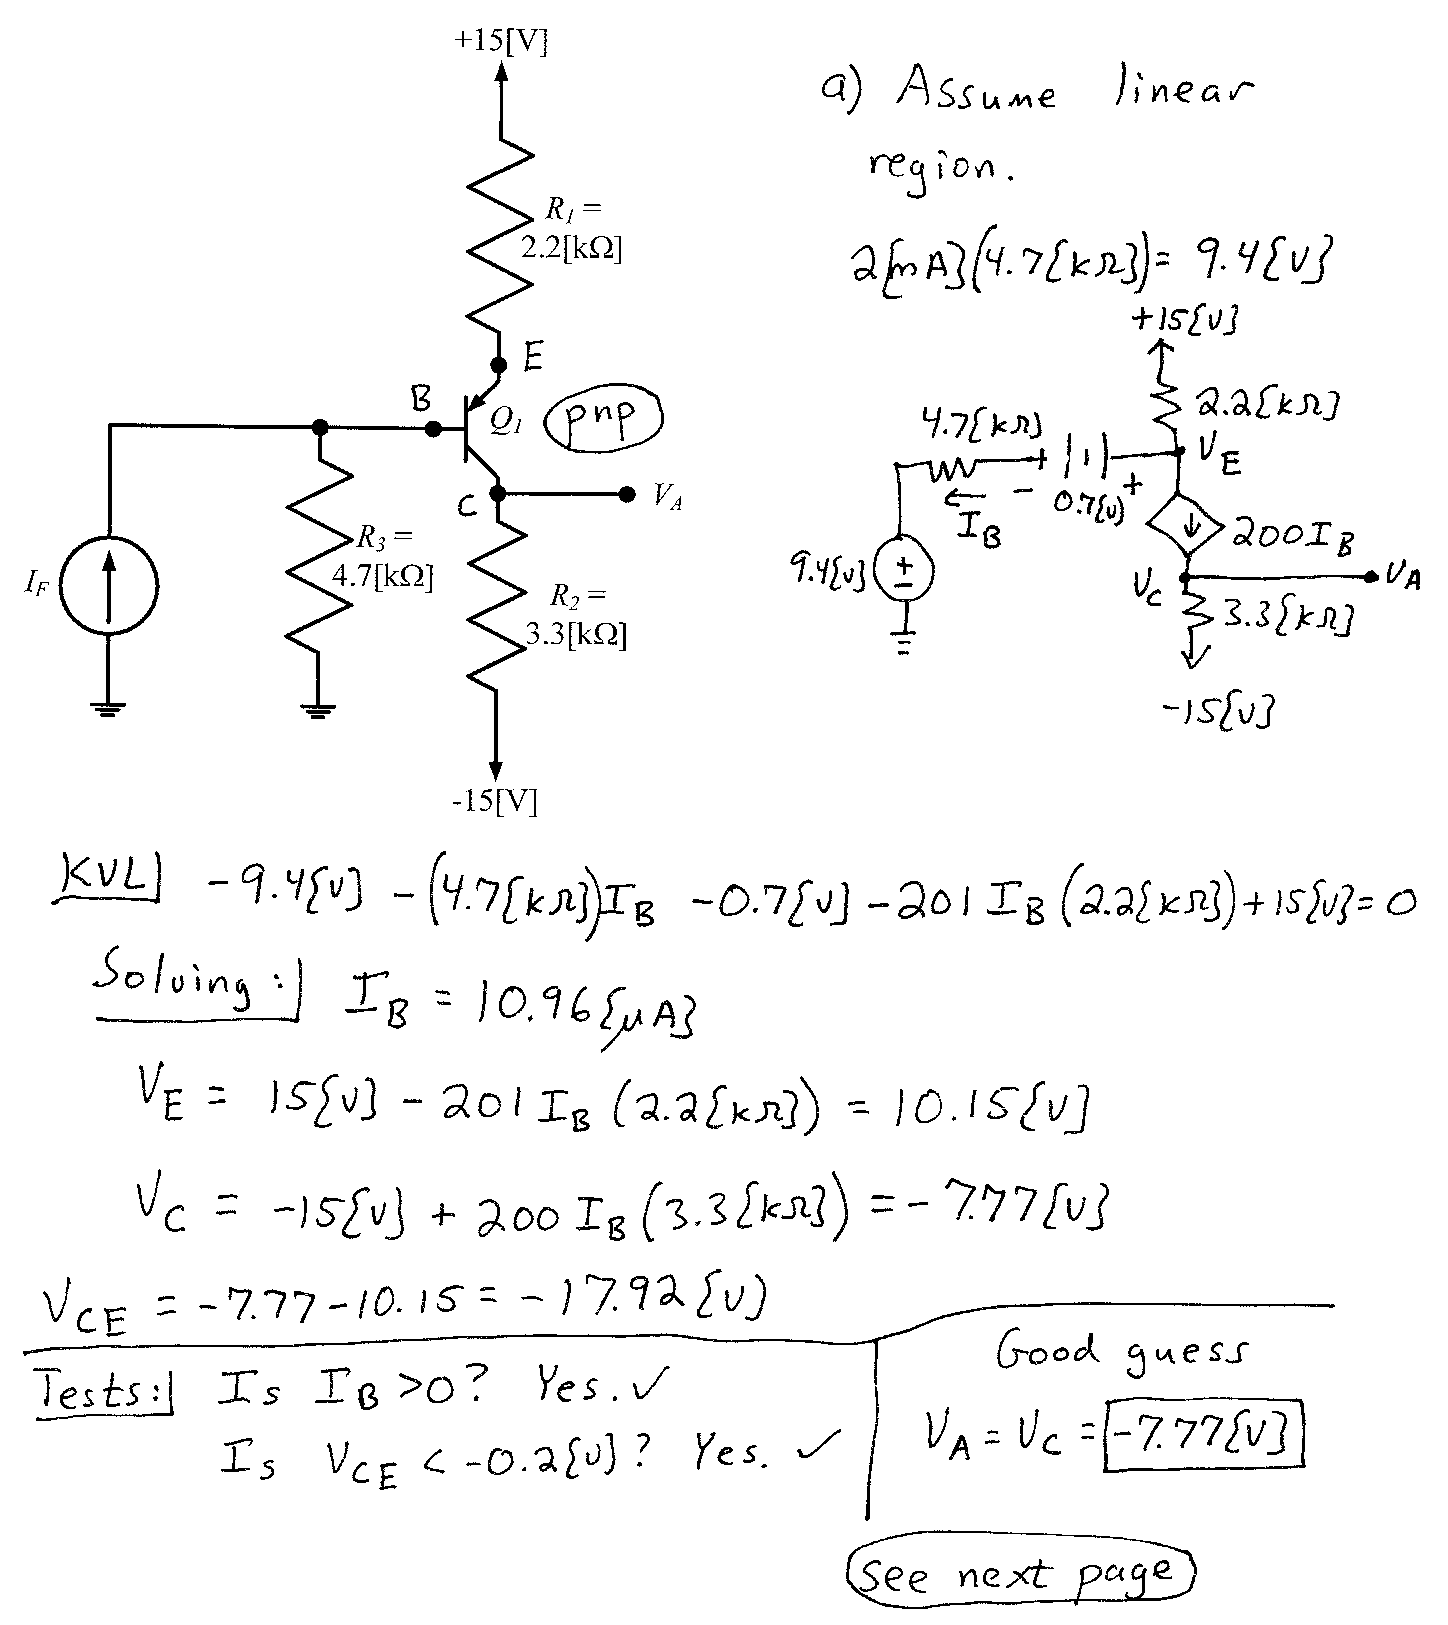 +15[V]
R1 =
2.2[kΩ]
E
B
Q1
pnp
C
VA
IF
R3 =
4.7[kΩ]
R2 =
3.3[kΩ]
-15[V]
a) Assume linear
region.
2[mA](4.7[kΩ])= 9.4[V]
+15[V]
2.2[kΩ]
4.7[kΩ]
+
VE
- 0.7[V] +
IB
200IB
9.4[V]
+
-
VC
VA
3.3[kΩ]
-15[V]
KVL] -9.4[V] -(4.7[kΩ])IB -0.7[V] -201 IB(2.2[kΩ])+15[V]=0
Solving:] IB = 10.96[μA]
VE = 15[V] - 201 IB (2.2[kΩ]) = 10.15[V]
VC = -15[V] + 200 IB (3.3[kΩ]) = -7.77[V]
VCE = -7.77-10.15 = -17.92[V]
Tests:] Is IB >0? Yes. ✓
Is VCE < -0.2[V]? Yes. ✓
Good guess
VA = VC = -7.77[V]
See next page